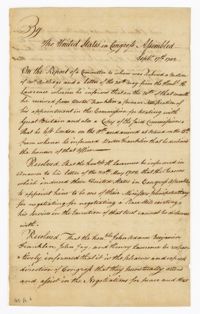 By
The United States in Congress Assembled
Sept. 17th 1782
On the Report of a Committee to whom was referred a motion
of and a letter of the 30th May from the Honble. H.
Laurens wherein he informs that on the 14th of that month
he received from Doctr. Franklin a
his appointment in the Commission for treating with
Great Britain and also a Copy of the Commission
that he left London on the and arrived at Ostend on the 15th
From whence he informed Doctor Franklin that he declined
the honour of that Office
Resolved That the honble. H. Laurens be informed in
answer to his letter of the 30th May 1782 that the
which induced these United States in Congress Assembled
to appoint him to be one of their Ministers
for negotiating a Peace still existing
his service in the execution of that trust cannot be dispensed
with
Resolved, That the honble. John Adams Benjamin
Franklin, John Jay, and Henry Laurens be respec
tively informed that it is the pleasure and express
direction of Congress that they punctually attend
and assist in the Negotiations for peace and that